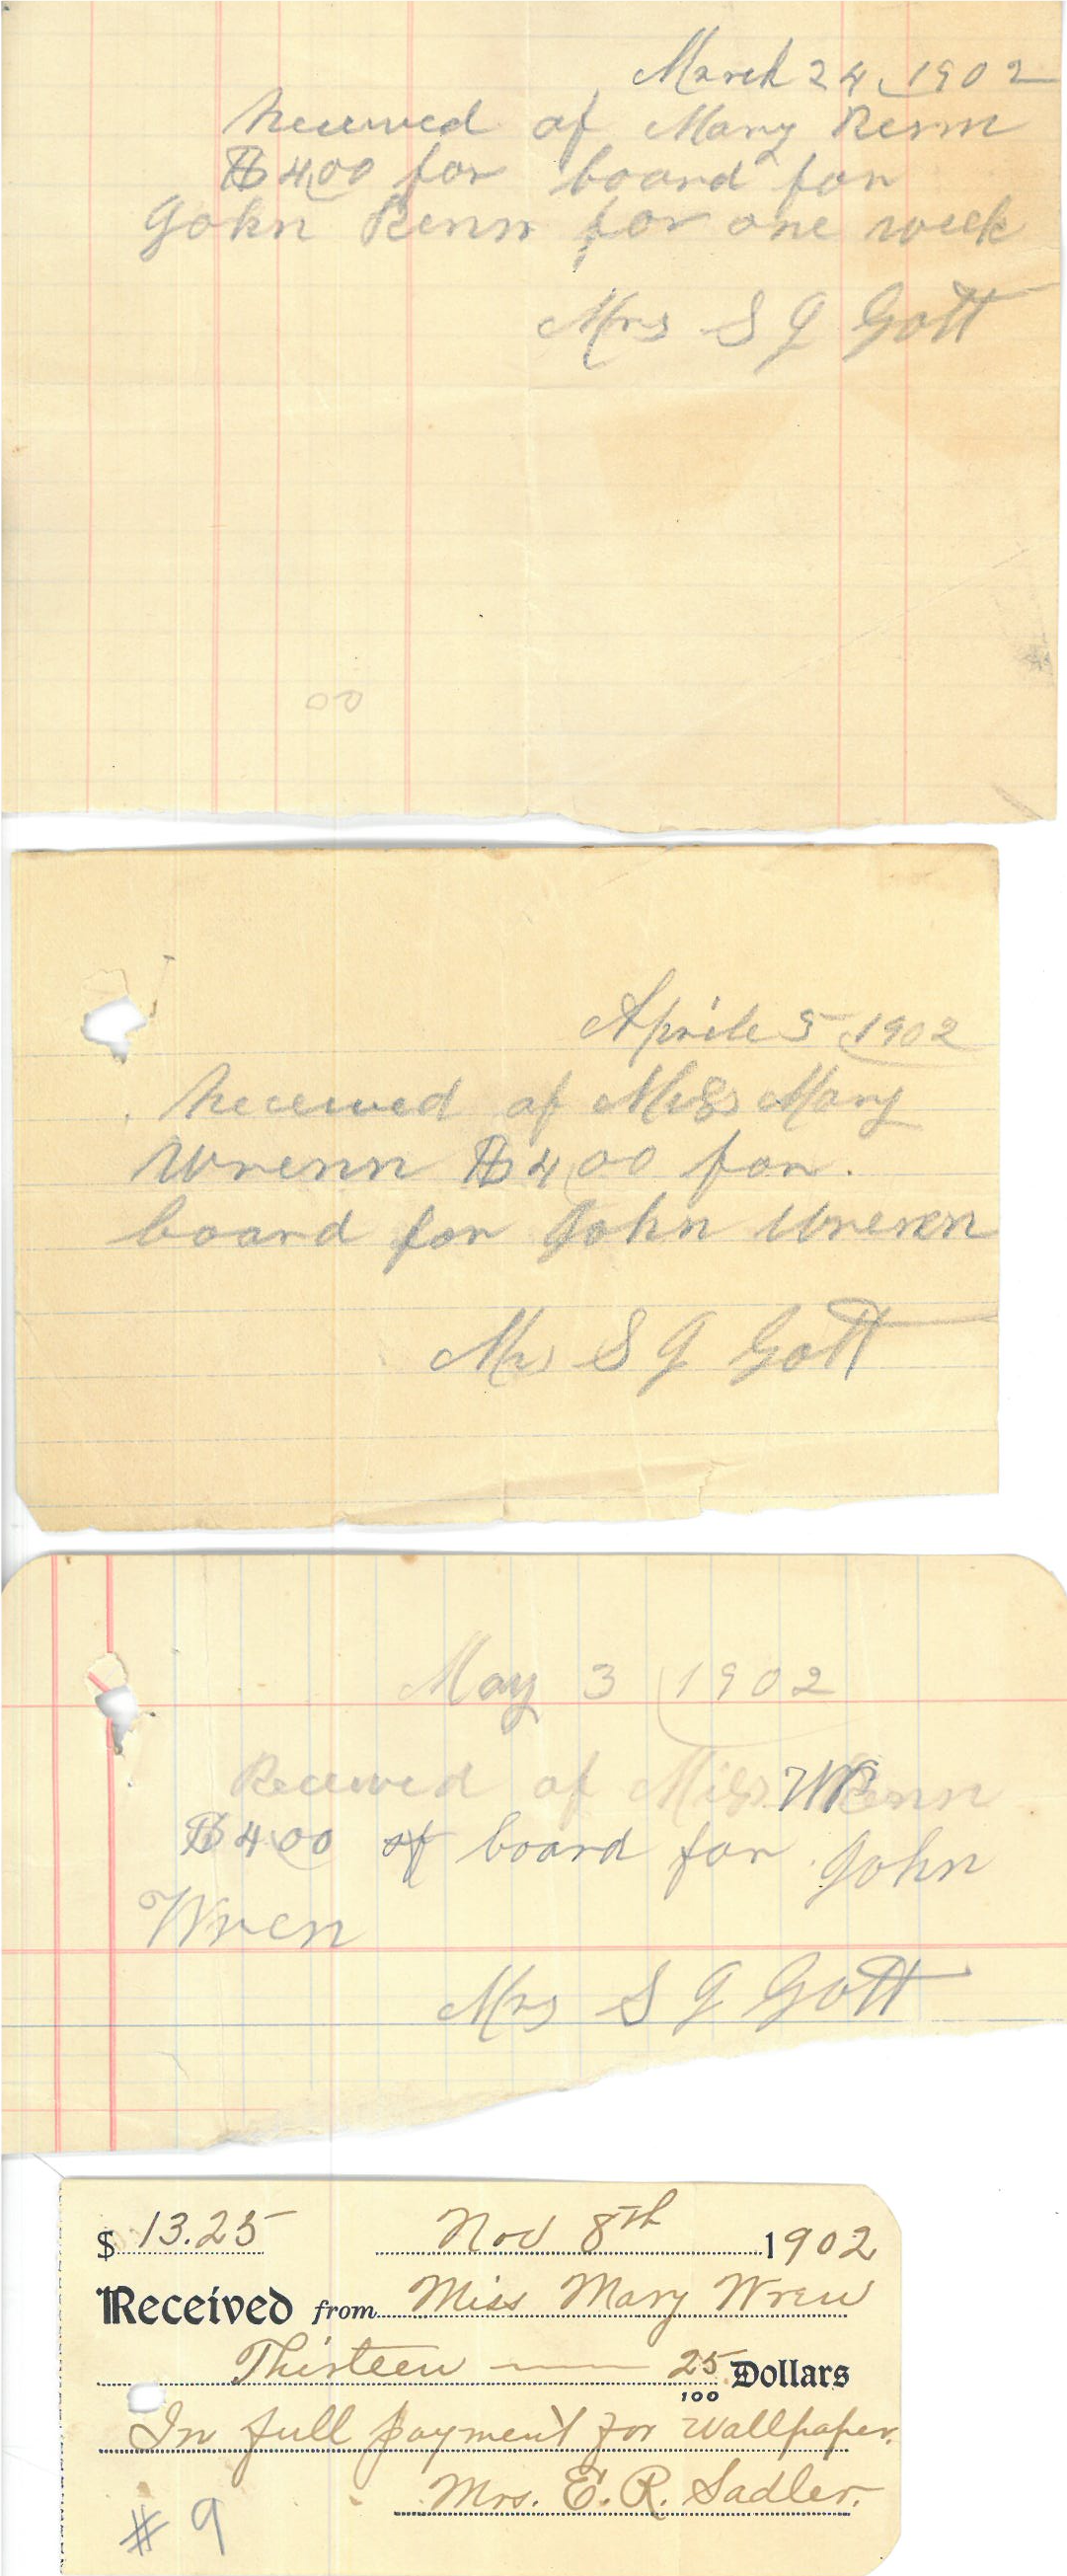 March 24 1902
Received of Mary Renn
$4.00 for board for
John Renn for one week
Mrs S G Gott
00
Aprile 5 1902
Received of Miss Mary
Wrenn $4.00 for.
board for John Wrenn
Mrs S G Gott
May 3 1902
Received of Miss Wrenn
$4.00 of board for John
Wren
Mrs S G Gott
$ 13.25 Nov 8th 1902
Received from Miss Mary Wren
Thirteen — 25/100 Dollars
In full payment for Wallpaper.
Mrs. E. R. Sadler.
# 9